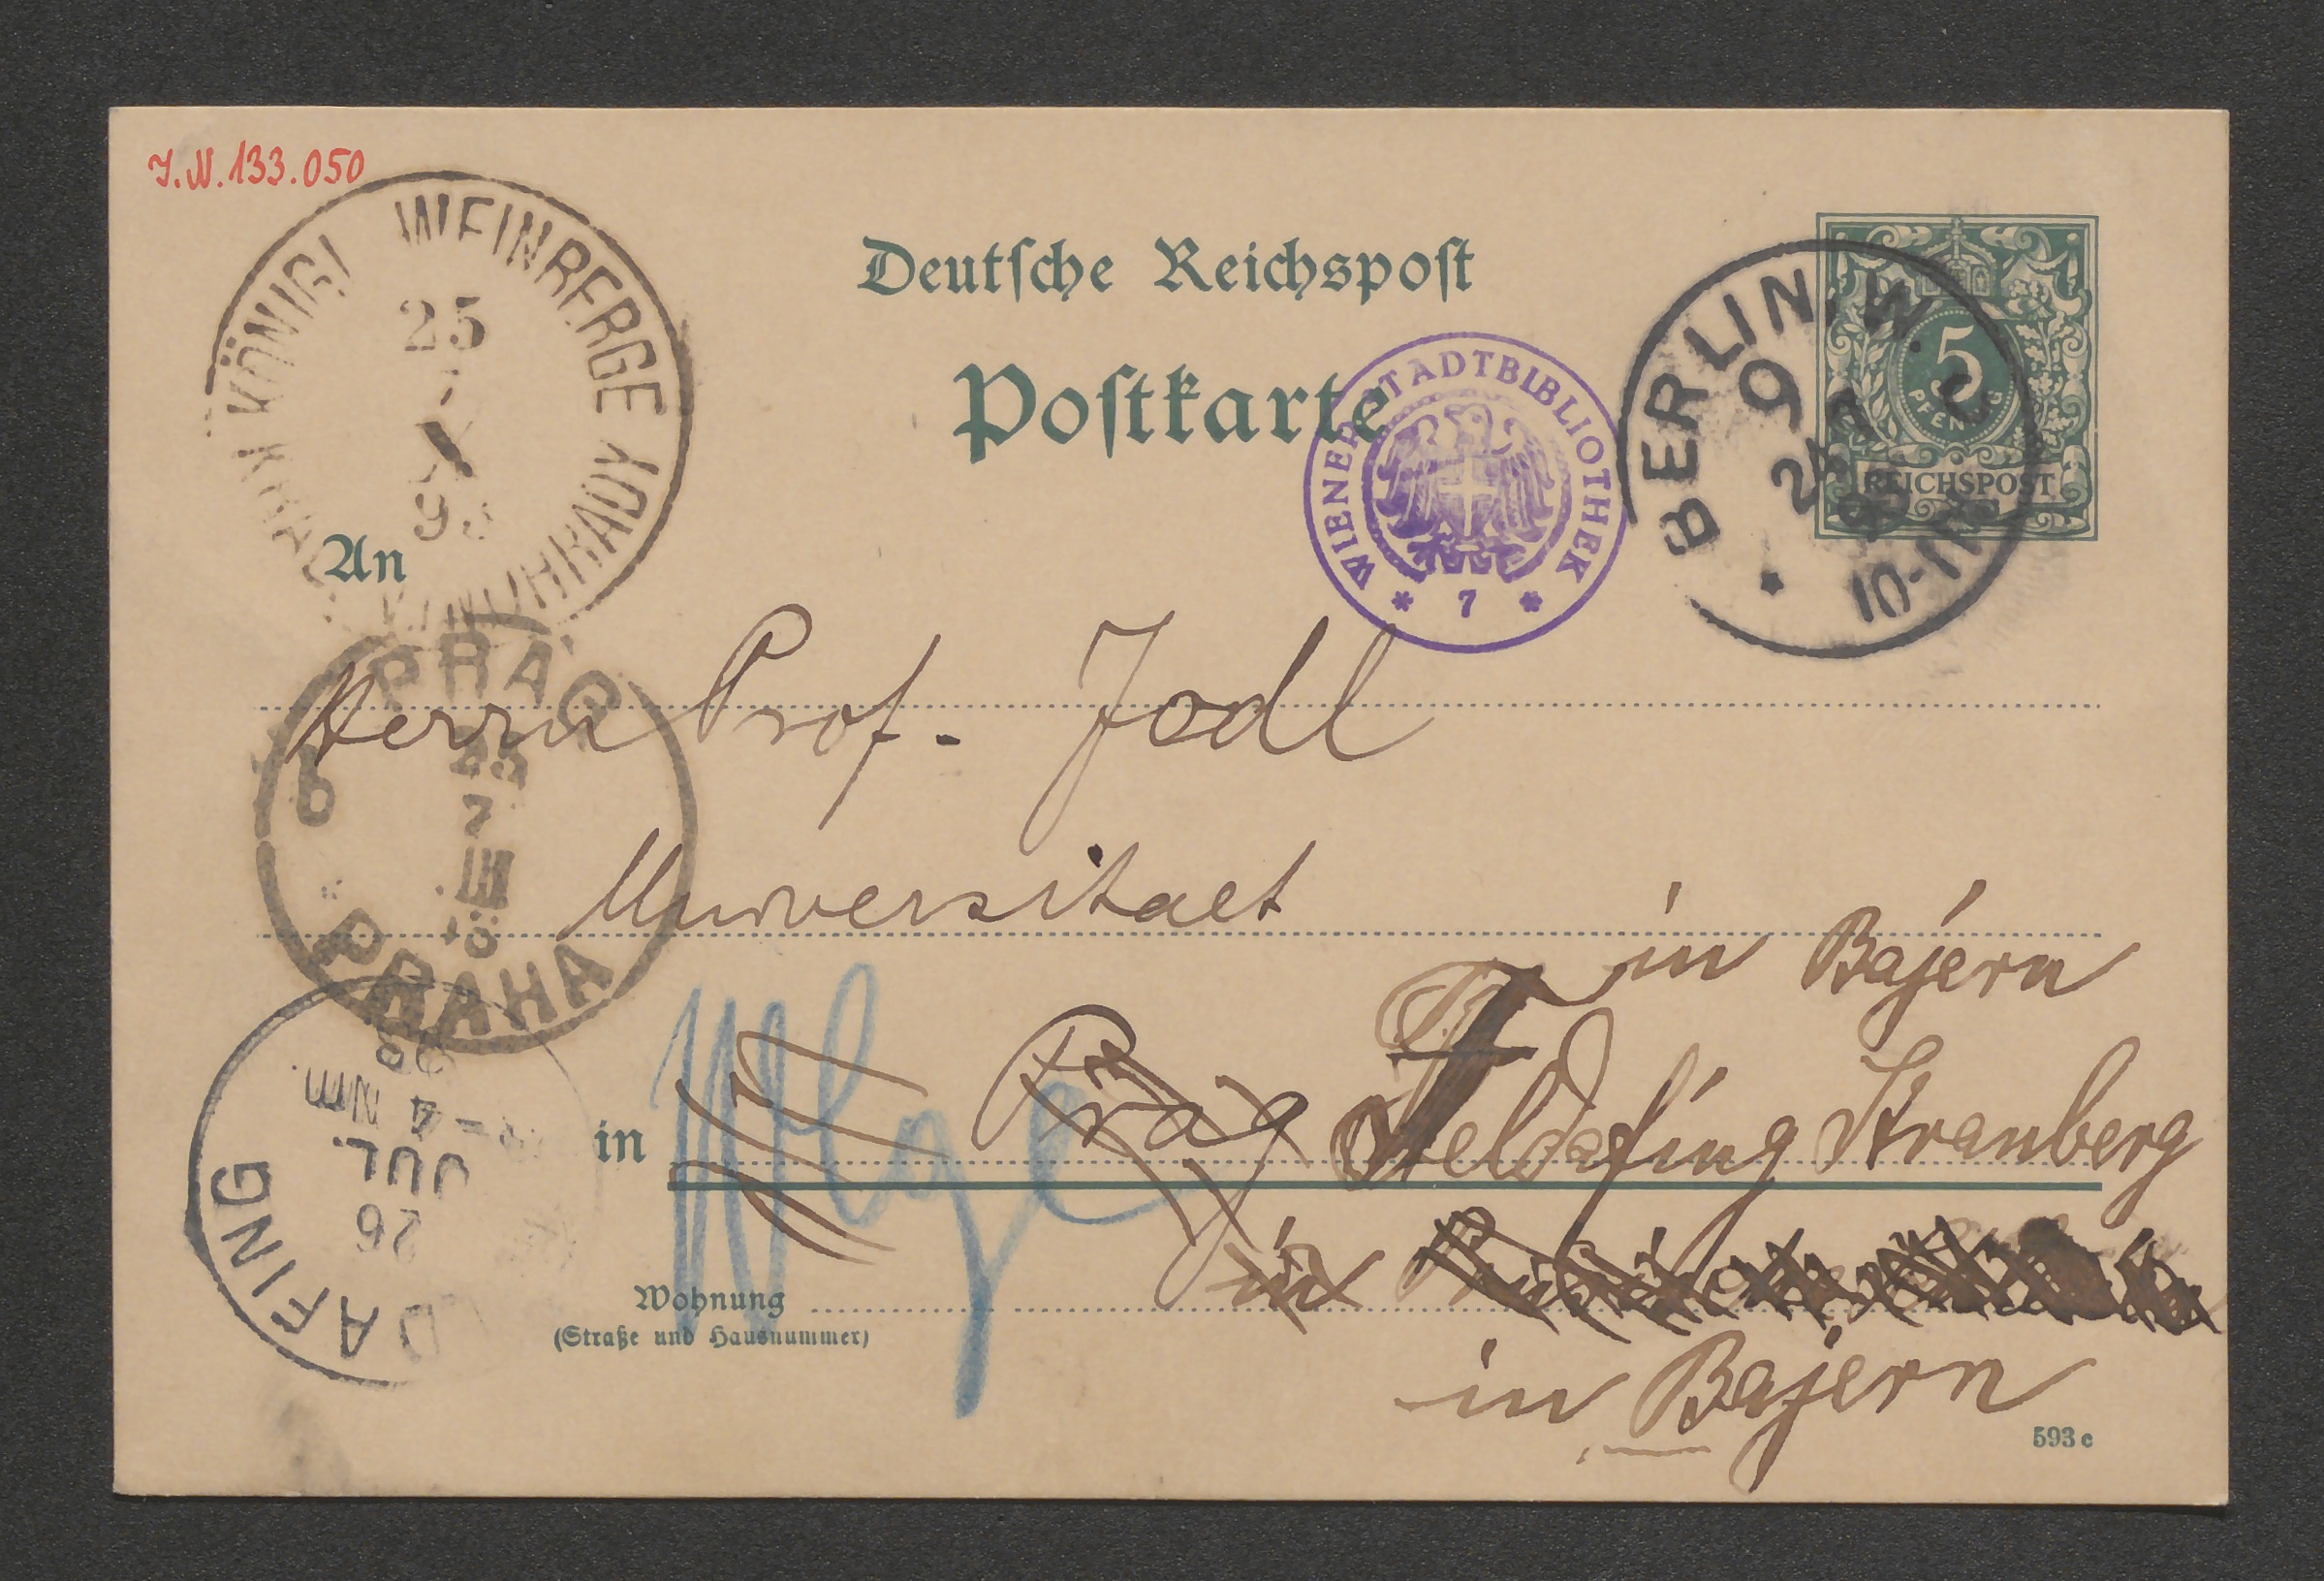 J.N. 133.050
Deutsche Reichspost
Postkarte
KÖNIGL WEINBERGE
25
VINOHRADY
WIENER STADTBIBLIOTHEK
* 7 *
BERLIN. W.
9
5
PFENNIG
REICHSPOST
10-11
An
Herrn Prof. Jodl
PRAG
25
7
III
PRAHA
Universitaet
in Bajern
in Prag Feldafing Stranberg
in
Wohnung
(Straße und Hausnummer)
in Bajern
593 c
DAFING
26
JUL.
4 Nm.